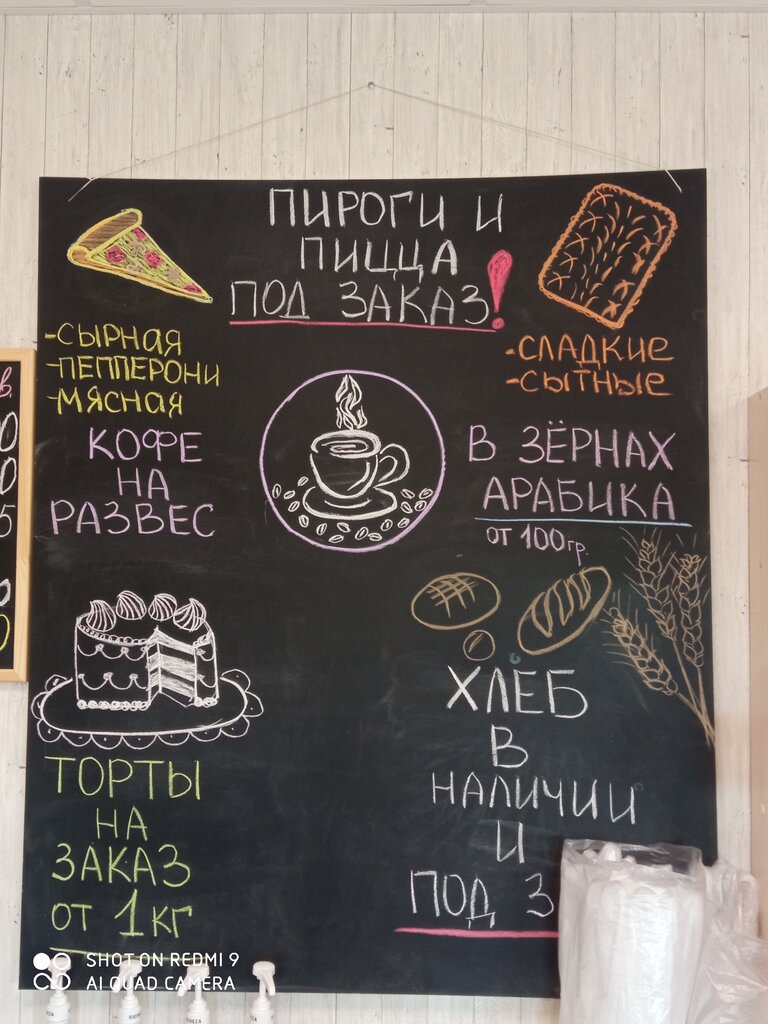 ПИРОГИ И
ПИЦЦА
ПОД ЗАКАЗ!
-СЫРНАЯ
-ПЕППЕРОНИ
-МЯСНАЯ
-СЛАДКИЕ
-СЫТНЫЕ
КОФЕ
НА
РАЗВЕС
В ЗЁРНАХ
АРАБИКА
ОТ 100гр.
ТОРТЫ
НА
ЗАКАЗ
ОТ 1 КГ
ХЛЕБ
В
НАЛИЧИИ
И
ПОД З
SHOT ON REDMI 9
AI QUAD CAMERA